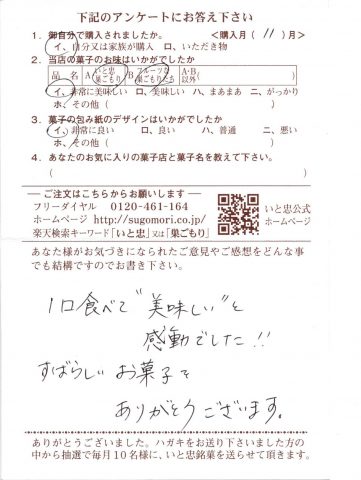 下記のアンケートにお答え下さい
1．御自分で購入されましたか。 <購入月( 11 )月>
イ、自分又は家族が購入 ロ、いただき物
2．当店の菓子のお味はいかがでしたか
品名 A いと忠巣ごもり B フルーツな巣ごもりたち A・B以外 ( )
イ、非常に美味しい ロ、美味しい ハ、まあまあ ニ、がっかり
ホ、その他 ( )
3．菓子の包み紙のデザインはいかがでしたか
イ、非常に良い ロ、良い ハ、普通 ニ、悪い
ホ、その他 ( )
4．あなたのお気に入りの菓子店と菓子名を教えて下さい。
( )
ご注文はこちらからお願いします
フリーダイヤル 0120-461-164
ホームページ http://sugomori.co.jp/
楽天検索キーワード「いと忠」又は「巣ごもり」
いと忠公式
ホームページ
あなた様がお気づきになられたご意見やご感想をどんな事
でも結構ですのでお書き下さい。
1口食べて"美味しい"と
感動でした!!
すばらしい お菓子を
ありがとうございます。
ありがとうございました。ハガキをお送り下さいました方の
中から抽選で毎月10名様に、いと忠銘菓を送らせて頂きます。